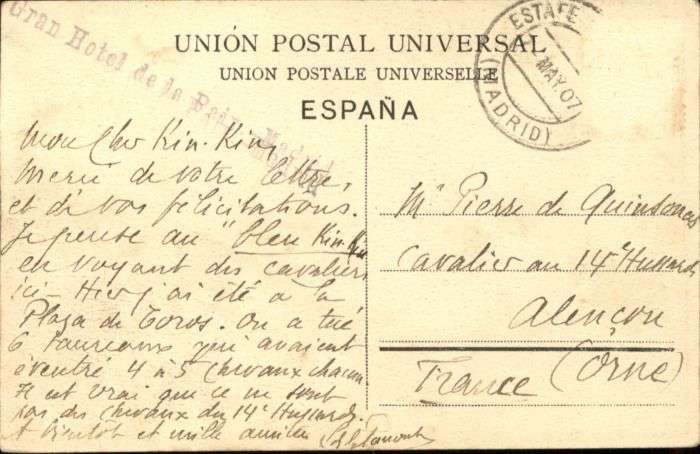 Gran Hotel de la Paix Madrid
UNIÓN POSTAL UNIVERSAL
UNION POSTALE UNIVERSELLE
ESPAÑA
ESTAFE
MAY.07
(MADRID)
Mon Cher Kin-Kin,
Merci de votre lettre,
et de vos félicitations.
Je pense au "bleu Kin-Kin
en voyant des cavaliers
ici - Hier j'ai été à la
Plaza de Toros. On a tué
6 taureaux qui avaient
éventré 4 à 5 chevaux chacun.
Il est vrai que ce ne sont
pas des chevaux du 14e Hussards.
A bientôt et mille amitiés
Mr Pierre de Quinsonas
Cavalier au 14e Hussards
Alençon
(Orne)
France